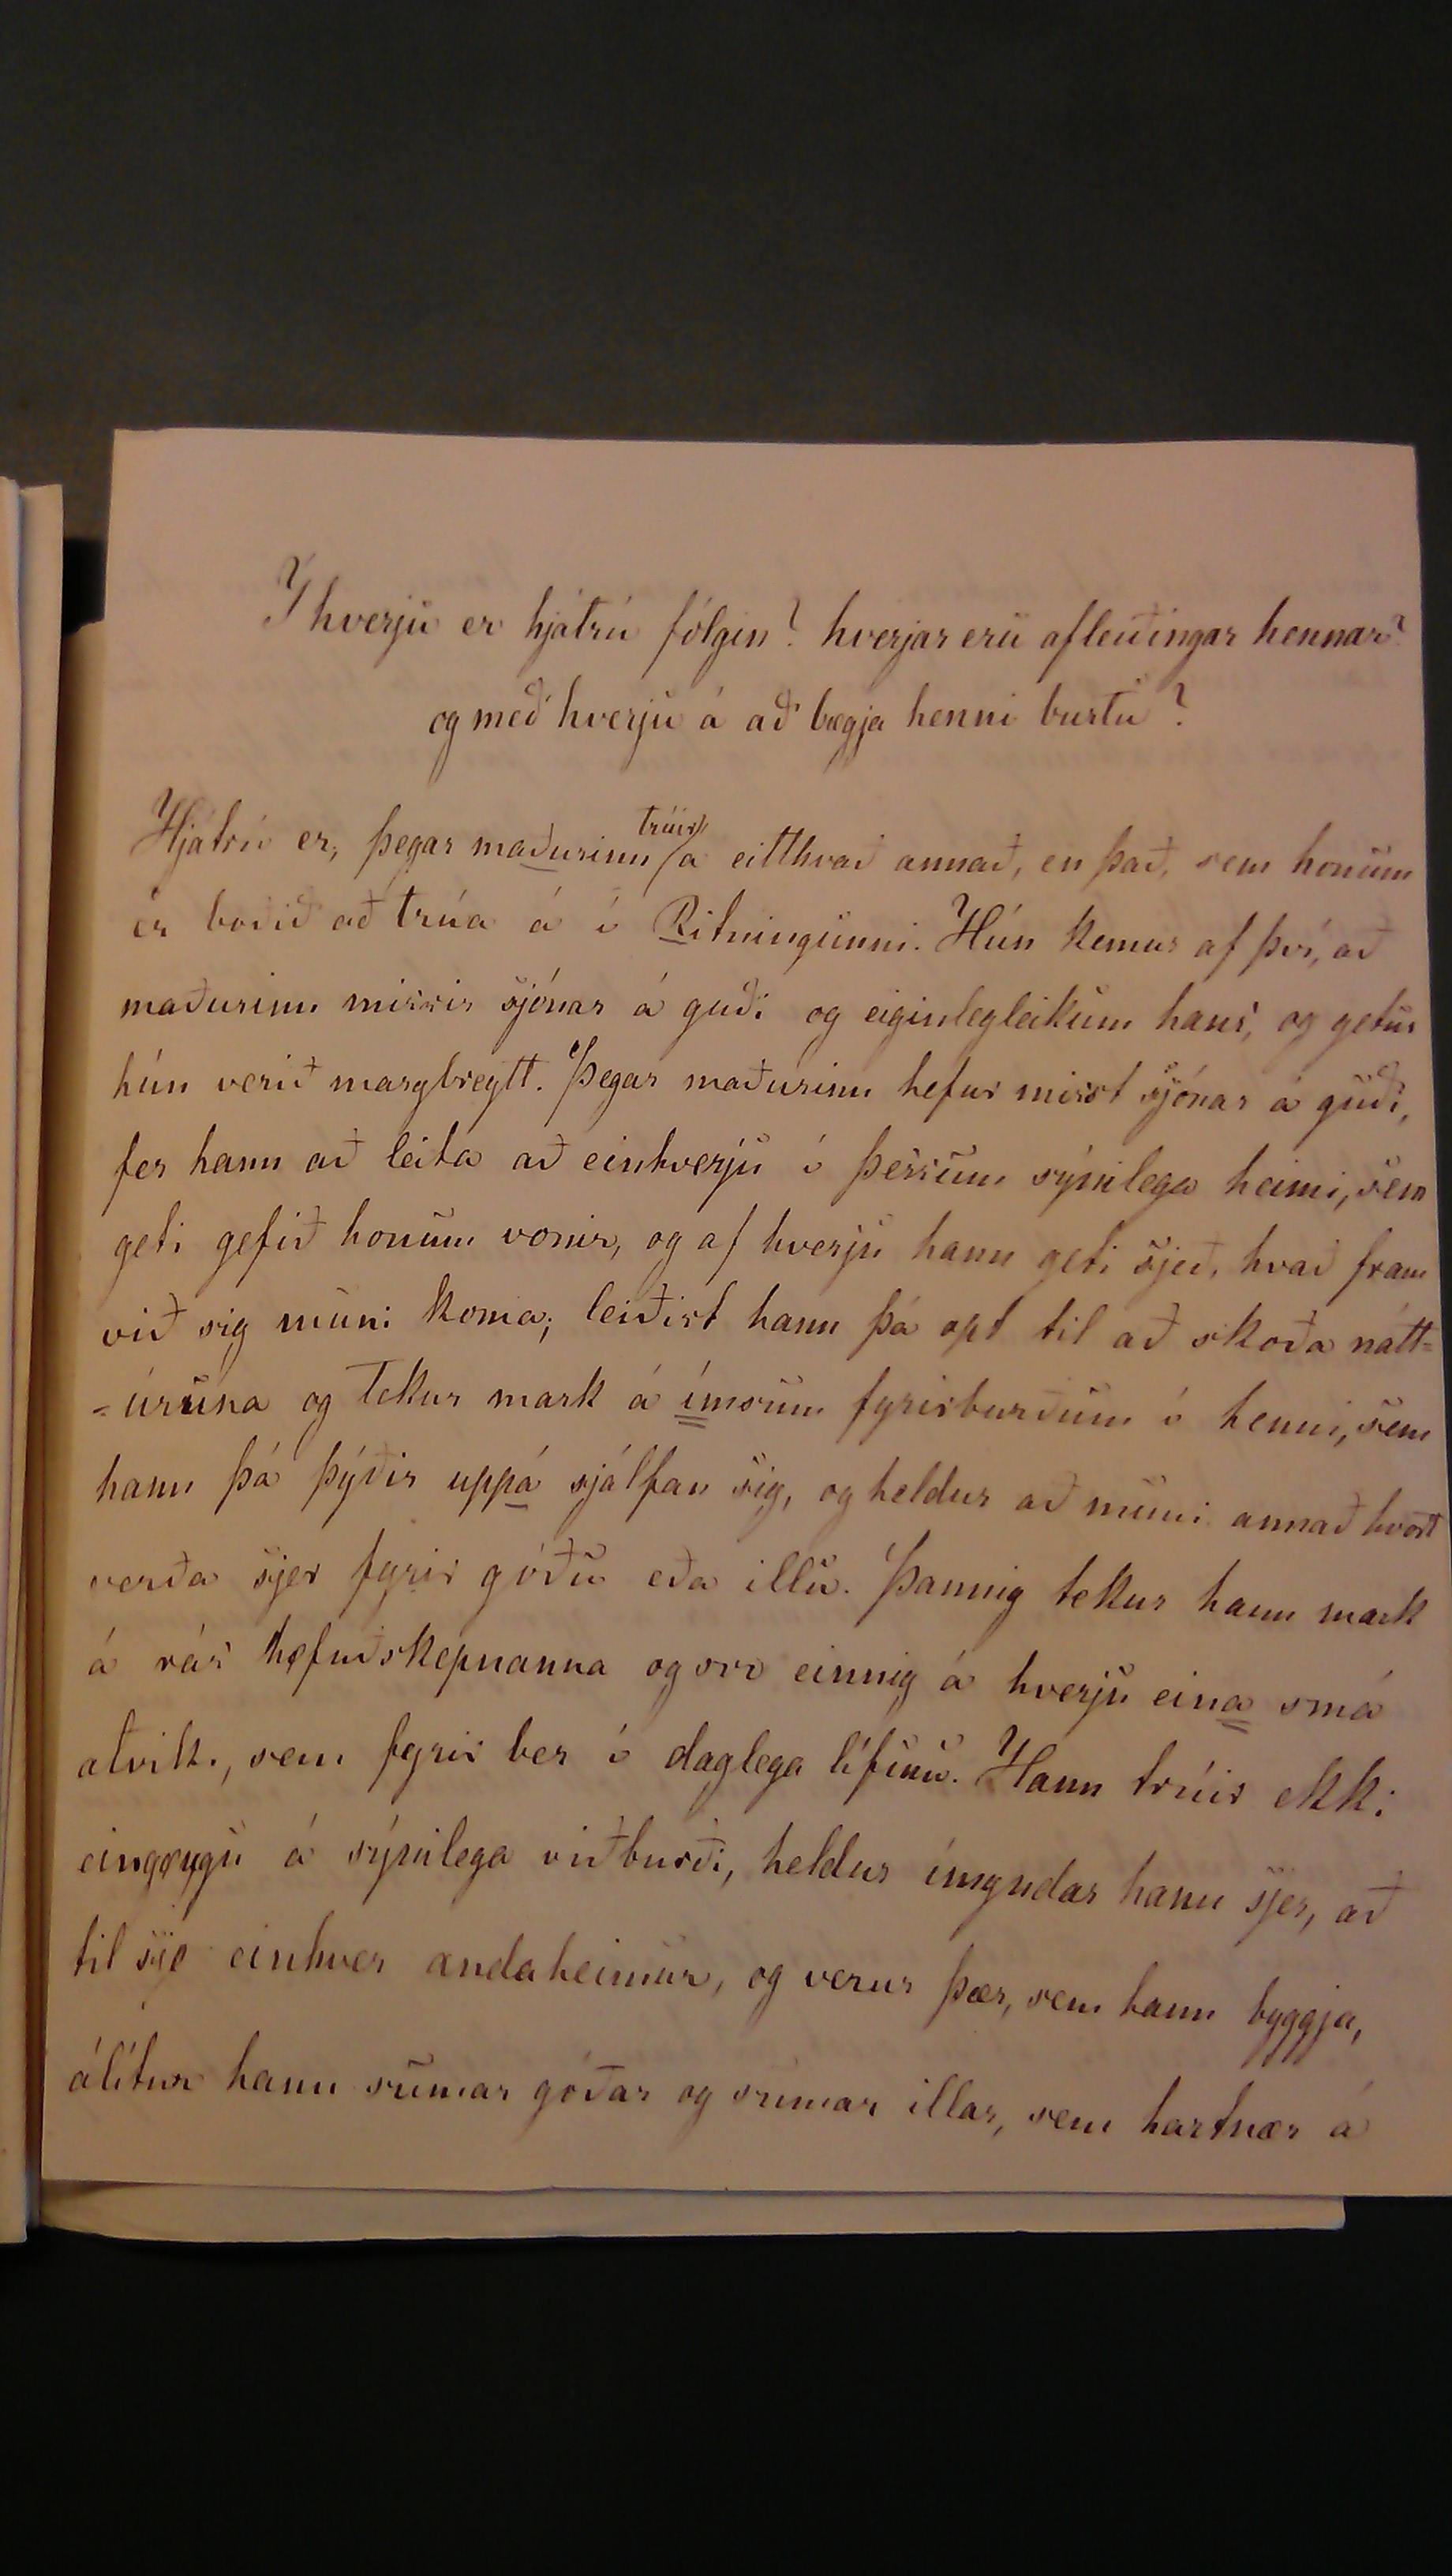 Í hverju er hjátrú fólgin? hverjar eru afleiðingar hennar?
og með hverju á að bægja henni burtu?
Hjátrú er, þegar maðurinn trúir á eitthvað annað, en það, sem honum
er boðið að trúa á í Ritningunni. Hún kemur af því, að
maðurinn missir sjónar á guði og eiginlegleikum hans, og getur
hún verið margbreytt. Þegar maðurinn hefur misst sjónar á guði,
fer hann að leita að einhverju í þessum sýnilega heimi, sem
geti gefið honum vonir, og af hverju hann geti sjeð, hvað fram
við sig muni koma; leiðist hann þá opt til að skoða nátt=
=úruna og tekur mark á ímsum fyrirburðum í henni, sem
hann þá þýðir uppá sjálfan sig, og heldur að muni annað hvort
verða sjer fyrir góðu eða illu. Þannig tekur hann mark
á rás höfuðskepnanna og svo einnig á hverju eina smá
atviki, sem fyrir ber í daglega lífinu. Hann trúir ekki
eingöngu á sýnilega viðburði, heldur ímyndar hann sjer, að
til sje einhver andaheimur, og verur þær, sem hann byggja,
álítur hann sumar góðar og sumar illar, sem hartnær á